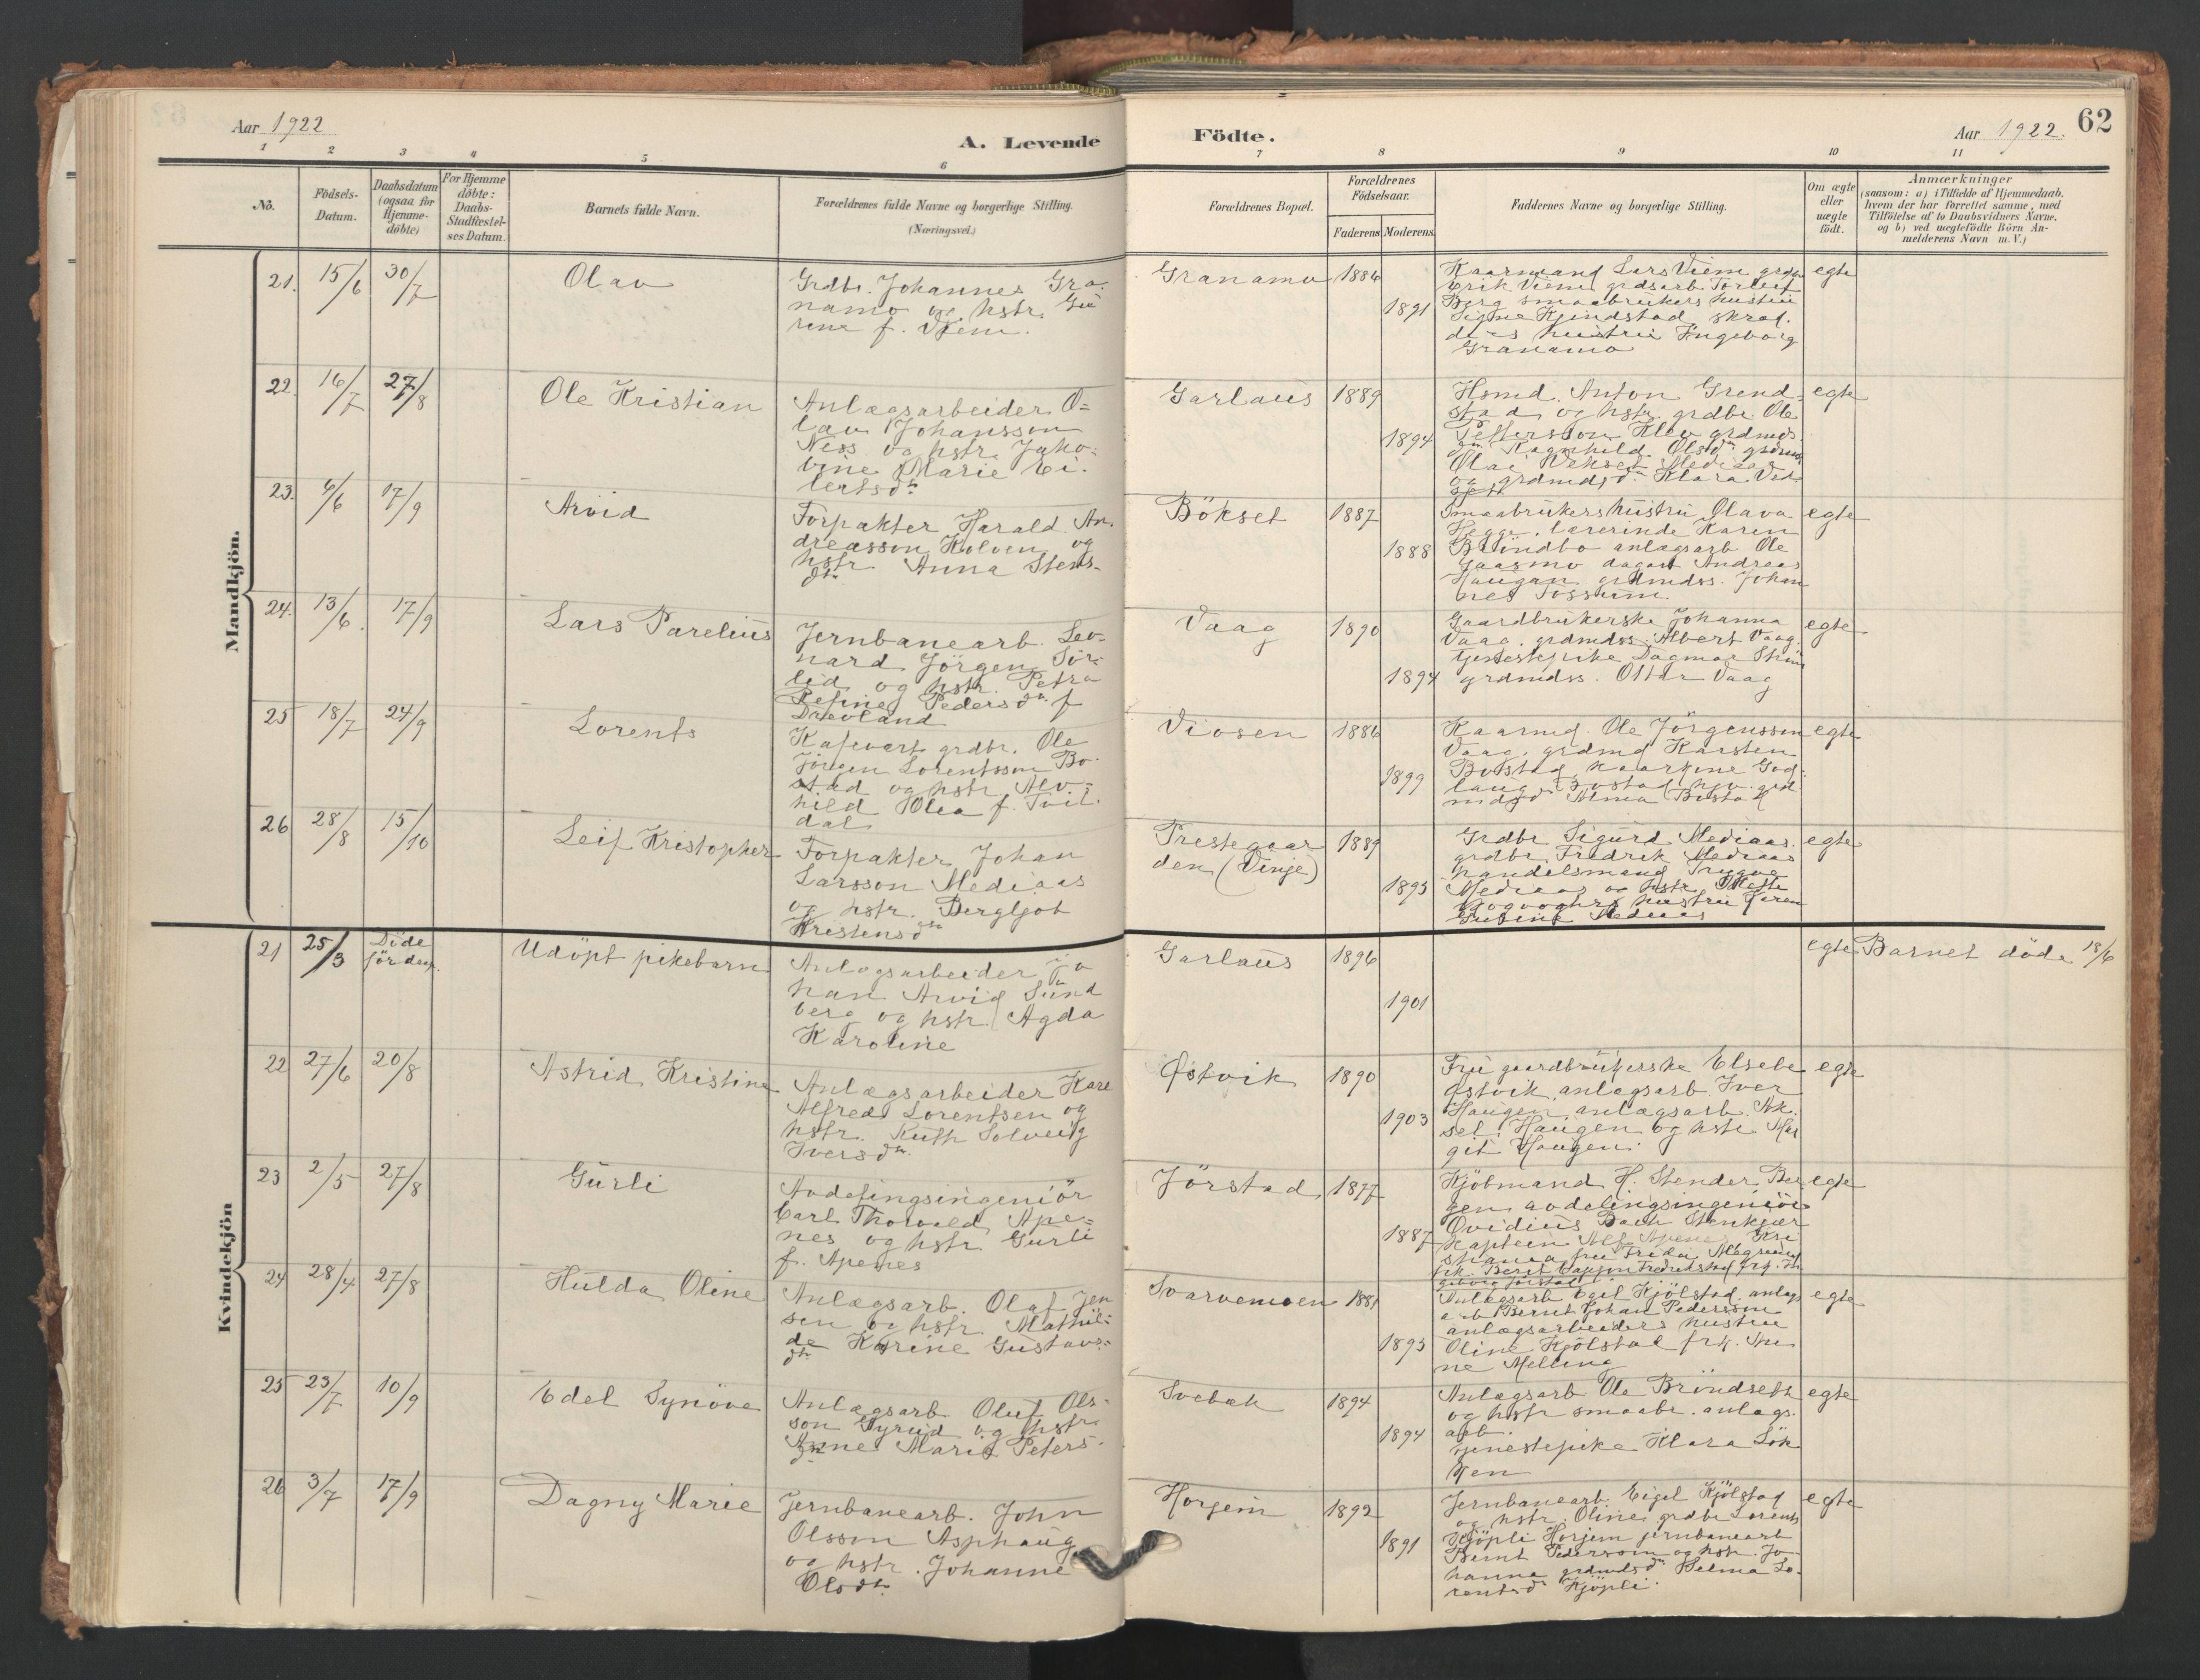 Aar 1922
A. Levende
Födte.
Aar 1922.
62
1 2 3 4 5 6 7 8 9 10 11
No.
Födsels-
Datum.
Daabsdatum
(ogsaa for
Hjemme-
döbte)
For Hjemme
döbte:
Daabs-
Stadfestel-
ses Datum.
Barnets fulde Navn.
Forældrenes fulde Navne og borgerlige Stilling.
(Næringsvei.)
Forældrenes Bopæl.
Forældrenes
Födselsaar.
Faderens Moderens
Faddernes Navne og borgerlige Stilling.
Om ægte
eller
uægte
födt.
Anmærkninger
(saasom: a) i Tilfælde af Hjemmedaab,
hvem der har forrettet samme, med
Tilföielse af to Daabsvidners Navne,
og b) ved uægtefödte Börn An-
melderens Navn m. V.)
Mandkjön.
21. 15/6 30/7 Olav
Grdbr. Johannes Gra-
namo og hstr. Gu
rine f. Viem.
Granamo 1886
1891
Kaarmand Lars Viem grdbr
Erik Viem grdsarb. Torleif
Berg smaabrukers hustru
Signe Kjendstad skred-
ders hustru Ingeborg
Granamo
egte
22. 16/7 27/8 Ole Kristian
Anlægsarbeider O-
lav Johansson
Ness og hstr. Jako-
bine Marie Ei-
lertsdtr
Garlaus 1889
1894
Hsmd. Anton Grend-
stad og hstr. grdbr. Ole
Pettersson Klev grdmds-
dtr Ragnhild Olsdtr
Olai Mediaas
og grdmdsdtr Klara Ved-
egte
23. 4/6 17/9 Arvid
Forpakter Harald An-
dreasson Holven og
hstr. Anna Stens-
dtr.
Bökset 1887
1888
Smaabrukers hustru Olava
Hegge, lærerinde Karen
Bröndbo anlægsarb Ole
Gaasmo dagarb Andreas
Haugan grdmdss. Johan
nes Fossum
egte
24. 13/6. 17/9 Lars Parelius
Jernbanearb. Leo-
nard Jörgen Sör-
lid og hstr. Petra
Petine Pedersdtr f
Drevland
Vaag 1890
1894
Gaardbrukerske Johanna
Vaag, grdmdss. Albert Vaag
tjenestepike Dagmar
grdmdss. Ottar Vaag
egte
25 18/7 24/9 Lorents
Kafevert grdbr. Ole
Jörgen Lorentsson Bo-
stad og hstr. Alv-
hild Olea f. Tvil-
dal
Viosen 1886
1899
Kaarmd Ole Jörgensson
Vaag, grdmd Karsten
Bostad, kaarkone God-
laug Bostad
mdsdtr Alma Bostad
egte
26 28/8 15/10 Leif Kristopher
Forpakter Johan
Larsson Mediaas
og hstr. Bergljot
Kristensdtr
Prestegaar
den (Vinje)
1889
1895
Grdbr Sigurd Mediaas
grdbr. Fredrik Mediaas
handelsmand Trygve
Mediaas og hstr. Mette
hustru Karen
Mediaas
egte
Kvindekjön
21 25/3 Döde
för daap. Udöpt pikebarn
Anlægsarbeider Jo
han Arvid Sund
berg og hstr. Agda
Karoline
Garlaus 1896
1901
egte Barnet döde 18/6
22 27/6 20/8 Astrid Kristine
Anlægsarbeider Kare
Alfred Lorentsen og
hstr. Ruth Solveig
Iversdtr.
Østvik 1890
1903
Fru gaardbrukerske Elsebe
Østvik, anlægsarb. Iver
Haugen, anlægsarb. Ak-
sel Haugen og hstr. Mar
git Haugen.
egte
23 2/5 27/8 Gurli
Avdelingsingeniör
Carl Thorvald Ape-
nes og hstr. Gurli
f. Apenes
Jörstad 1877
1887
Kjöbmand H. Stender Ber
gen avdelingsingeniör
Ovidius Bach Stenkjær
Kaptein Alf Apenes Kri
stiania fru Frida
frk. Berit Fredrikstad frk. In
geborg Jörstad
egte
24 28/4 27/8 Hulda Oline
Anlægsarb. Olaf Jen
sen og hstr. Mathil-
de Karine Gustavs-
dtr.
Svarvemoen 1881
1893
Anlægsarb Egil Kjölstad. anlægs
arb Bernt Johan Pedersson
anlægsarbeiders hustru
Oline Kjölstad frk. An
ne Melling
egte
25 23/7 10/9 Edel Synöve
Anlægsarb Oluf Ols-
son Gyrud og hstr.
Anne Marie Peters-
dtr
Svebak 1894
1894
Anlægsarb Ole Bröndseth
og hstr smaabr. anlægs.
arb.
tjenestepike Klara Lök
ken
egte
26 3/7 17/9 Dagny Marie
Jernbanearb. John
Olsson Asphaug
og hstr. Johanne
Olsdtr.
Horjem 1892
1891
Jernbanearb. Eigel Kjölstad
og hstr. Oline, grdbr Lorents
Kjöpli Horjem jernbanearb
Bernt Pedersson og hstr. Jo-
hanna grdmdsdtr Selma Lo-
rentsdtr Kjöpli.
egte